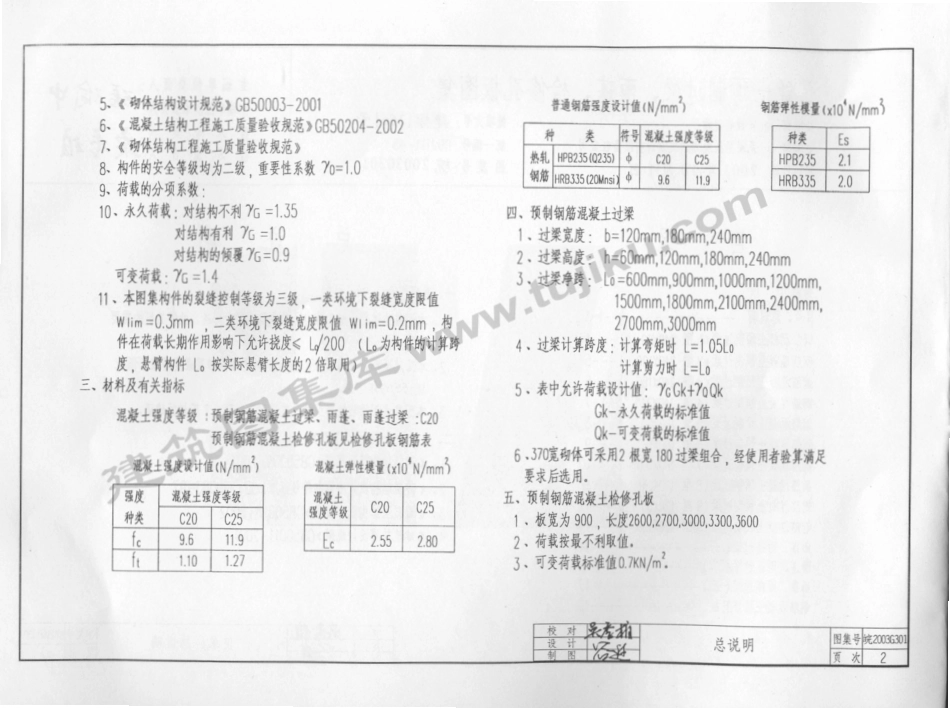 5、《砌体结构设计规范》GB50003-2001
6、《混凝土结构工程施工质量验收规范》GB50204-2002
7、《砌体结构工程施工质量验收规范》
8、构件的安全等级均为二级，重要性系数 γ0=1.0
9、荷载的分项系数：
10、永久荷载：对结构不利 γG =1.35
对结构有利 γG =1.0
对结构的倾覆 γG =0.9
可变荷载：γG =1.4
11、本图集构件的裂缝控制等级为三级，一类环境下裂缝宽度限值
Wlim =0.3mm ，二类环境下裂缝宽度限值 Wlim=0.2mm ，构
件在荷载长期作用影响下允许挠度≤ L0/200 （L0为构件的计算跨
度，悬臂构件 L0 按实际悬臂长度的2倍取用）
三、材料及有关指标
混凝土强度等级：预制钢筋混凝土过梁、雨蓬、雨蓬过梁：C20
预制钢筋混凝土检修孔板见检修孔板钢筋表
混凝土强度设计值(N/mm²)
强度种类 混凝土强度等级
C20 C25
fc 9.6 11.9
ft 1.10 1.27
混凝土弹性模量(x10⁴N/mm²)
混凝土强度等级 C20 C25
Ec 2.55 2.80
普通钢筋强度设计值(N/mm²)
种 类 符号 混凝土强度等级
热轧钢筋 HPB235(Q235) ϕ C20 C25
HRB335(20Mnsi) ϕ 9.6 11.9
钢筋弹性模量(x10⁴N/mm²)
种类 Es
HPB235 2.1
HRB335 2.0
四、预制钢筋混凝土过梁
1、过梁宽度：b=120mm,180mm,240mm
2、过梁高度：h=60mm,120mm,180mm,240mm
3、过梁净跨：Lo=600mm,900mm,1000mm,1200mm,
1500mm,1800mm,2100mm,2400mm,
2700mm,3000mm
4、过梁计算跨度：计算弯矩时 L=1.05Lo
计算剪力时 L=Lo
5、表中允许荷载设计值：γGGk+γQQk
Gk-永久荷载的标准值
Qk-可变荷载的标准值
6、370宽砌体可采用2根宽180过梁组合，经使用者验算满足
要求后选用。
五、预制钢筋混凝土检修孔板
1、板宽为 900，长度2600,2700,3000,3300,3600
2、荷载按最不利取值。
3、可变荷载标准值0.7KN/m²。
建筑图集库 www.tujiku.com
校 对
设 计
制 图
总说明
图集号 皖2003G301
页 次 2